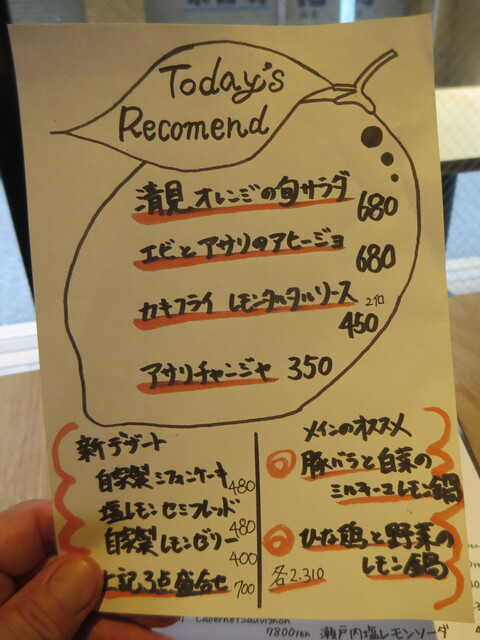 Today's
Recomend
清見オレンジの旬サラダ 680
エビとアサリのアヒージョ 680
カキフライ レモンタルタルソース 2個
450
アサリチャンジャ 350
新デザート
自家製シフォンケーキ 480
塩レモンセミフレッド 480
自家製レモンゼリー 400
上記3点盛合せ 700
メインのオススメ
◎豚バラと白菜の
ミルキーレモン鍋
◎ひな鶏と野菜の
レモン鍋
各2.310
Cabernet Sauvignon
7800yen 瀬戸内塩レモンソーダ